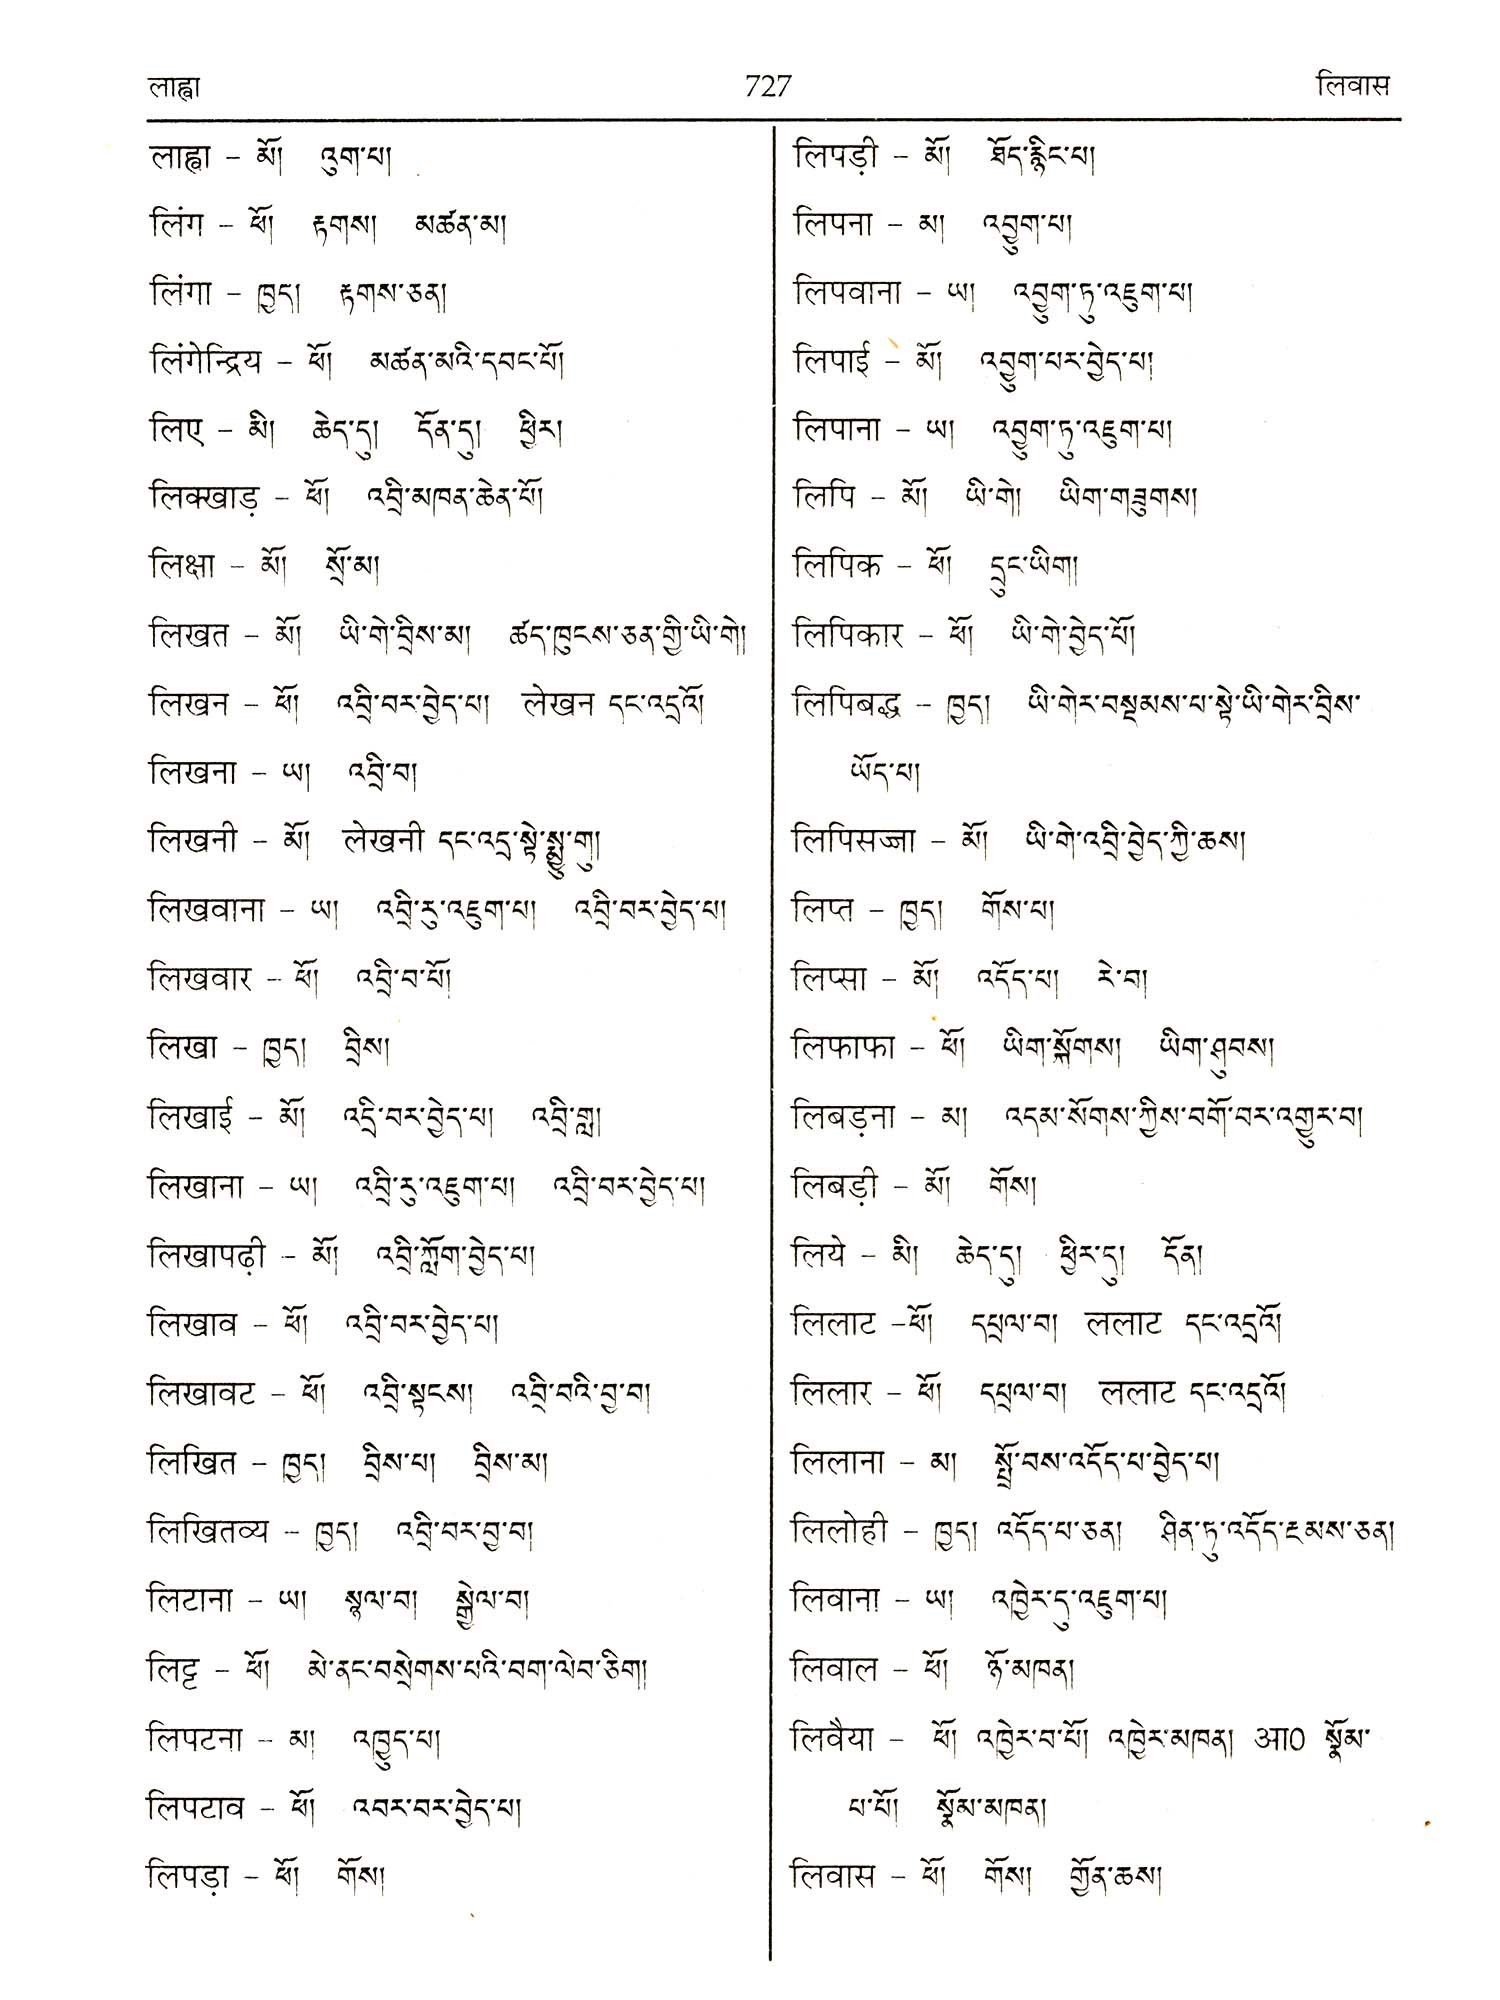 लाह्वा 727 लिवास
लाह्वा - མོ། འུག་པ།
लिंग - ཕོ། རྟགས། མཚན་མ།
लिंगा - ཁྱད། རྟགས་ཅན།
लिंगेन्द्रिय - ཕོ། མཚན་མའི་དབང་པོ།
लिए - མི། ཆེད་དུ། དོན་དུ། ཕྱིར།
लिक्खाड़ - ཕོ། འབྲི་མཁན་ཆེན་པོ།
लिक्षा - མོ། སྲོ་མ།
लिखत - མོ། ཡི་གེ་བྲིས་མ། ཚད་ཁུངས་ཅན་གྱི་ཡི་གེ།
लिखन - ཕོ། འབྲི་བར་བྱེད་པ། लेखन དང་འདྲའོ།
लिखना - ཡ། འབྲི་བ།
लिखनी - མོ། लेखनी དང་འདྲ་སྟེ་སྨྱུ་གུ།
लिखवाना - ཡ། འབྲི་རུ་འཇུག་པ། འབྲི་བར་བྱེད་པ།
लिखवार - ཕོ། འབྲི་བ་པོ།
लिखा - ཁྱད། བྲིས།
लिखाई - མོ། འདྲི་བར་བྱེད་པ། འབྲི་གླ།
लिखाना - ཡ། འབྲི་རུ་འཇུག་པ། འབྲི་བར་བྱེད་པ།
लिखापढ़ी - མོ། འབྲི་ཀློག་བྱེད་པ།
लिखाव - ཕོ། འབྲི་བར་བྱེད་པ།
लिखावट - ཕོ། འབྲི་སྟངས། འབྲི་བའི་བྱ་བ།
लिखित - ཁྱད། བྲིས་པ། བྲིས་མ།
लिखितव्य - ཁྱད། འབྲི་བར་བྱ་བ།
लिटाना - ཡ། སྙལ་བ། སྒྱེལ་བ།
लिट्ट - ཕོ། མེ་ནང་བསྲེགས་པའི་བག་ལེབ་ཅིག།
लिपटना - མ། འཁྱུད་པ།
लिपटाव - ཕོ། འབར་བར་བྱེད་པ།
लिपड़ा - ཕོ། གོས།
लिपड़ी - མོ། ཐོད་རྙིང་པ།
लिपना - མ། འབྱུག་པ།
लिपवाना - ཡ། འབྱུག་ཏུ་འཇུག་པ།
लिपाई - མོ། འབྱུག་པར་བྱེད་པ།
लिपाना - ཡ། འབྱུག་ཏུ་འཇུག་པ།
लिपि - མོ། ཡི་གེ། ཡིག་གཟུགས།
लिपिक - ཕོ། དྲུང་ཡིག།
लिपिकार - ཕོ། ཡི་གེ་བྱེད་པོ།
लिपिबद्ध - ཁྱད། ཡི་གེར་བསྡམས་པ་སྟེ་ཡི་གེར་བྲིས་
ཡོད་པ།
लिपिसज्जा - མོ། ཡི་གེ་འབྲི་བྱེད་ཀྱི་ཆས།
लिप्त - ཁྱད། གོས་པ།
लिप्सा - མོ། འདོད་པ། རེ་བ།
लिफाफा - ཕོ། ཡིག་སྐོགས། ཡིག་ཤུབས།
लिबड़ना - མ། འདམ་སོགས་ཀྱིས་བགོ་བར་འགྱུར་བ།
लिबड़ी - མོ། གོས།
लिये - མི། ཆེད་དུ། ཕྱིར་དུ། དོན།
लिलाट - ཕོ། དཔྲལ་བ། ललाट དང་འདྲའོ།
लिलार - ཕོ། དཔྲལ་བ། ललाट དང་འདྲའོ།
लिलाना - མ། སྤྲོ་བས་འདོད་པ་བྱེད་པ།
लिलोही - ཁྱད། འདོད་པ་ཅན། ཤིན་ཏུ་འདོད་རྔམས་ཅན།
लिवाना - ཡ། འཁྱེར་དུ་འཇུག་པ།
लिवाल - ཕོ། ཉོ་མཁན།
लिवैया - ཕོ། འཁྱེར་བ་པོ། འཁྱེར་མཁན། आ0 སྙོམ་
པ་པོ། སྙོམ་མཁན།
लिवास - ཕོ། གོས། གྱོན་ཆས།